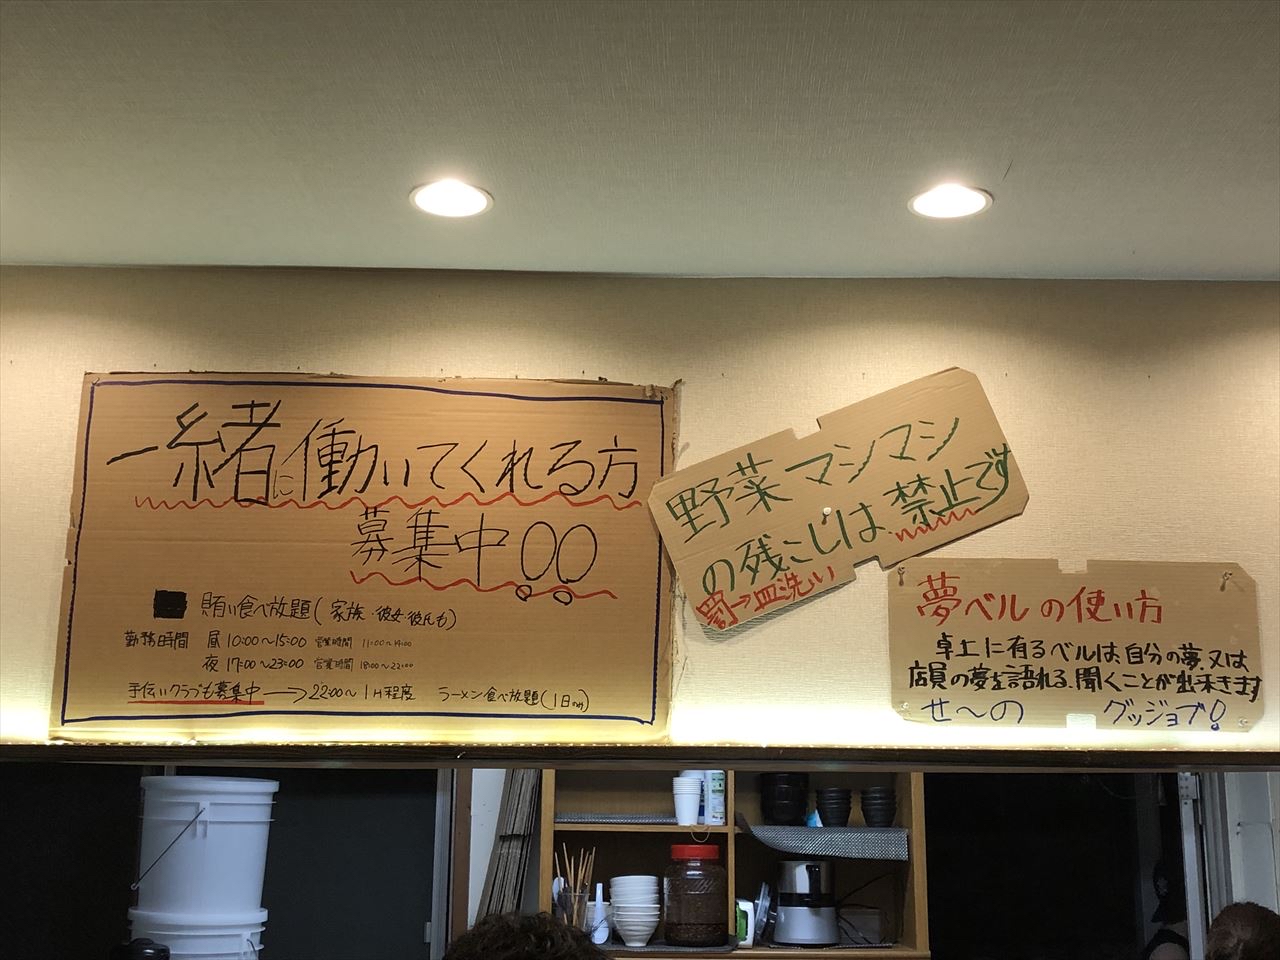 一緒に働いてくれる方
募集中!!
賄い食べ放題(家族・彼女・彼氏も)
勤務時間 昼10:00〜15:00 営業時間 11:00〜14:00
夜17:00〜23:00 営業時間 18:00〜22:00
手伝いクラブも募集中→22:00〜1H程度 ラーメン食べ放題(1日のみ)
野菜マシマシ
の残こしは禁止です
罰→皿洗い
夢ベルの使い方
卓上に有るベルは、自分の夢、又は
店員の夢を語れる、聞くことが出来きます
せ〜の グッジョブ!